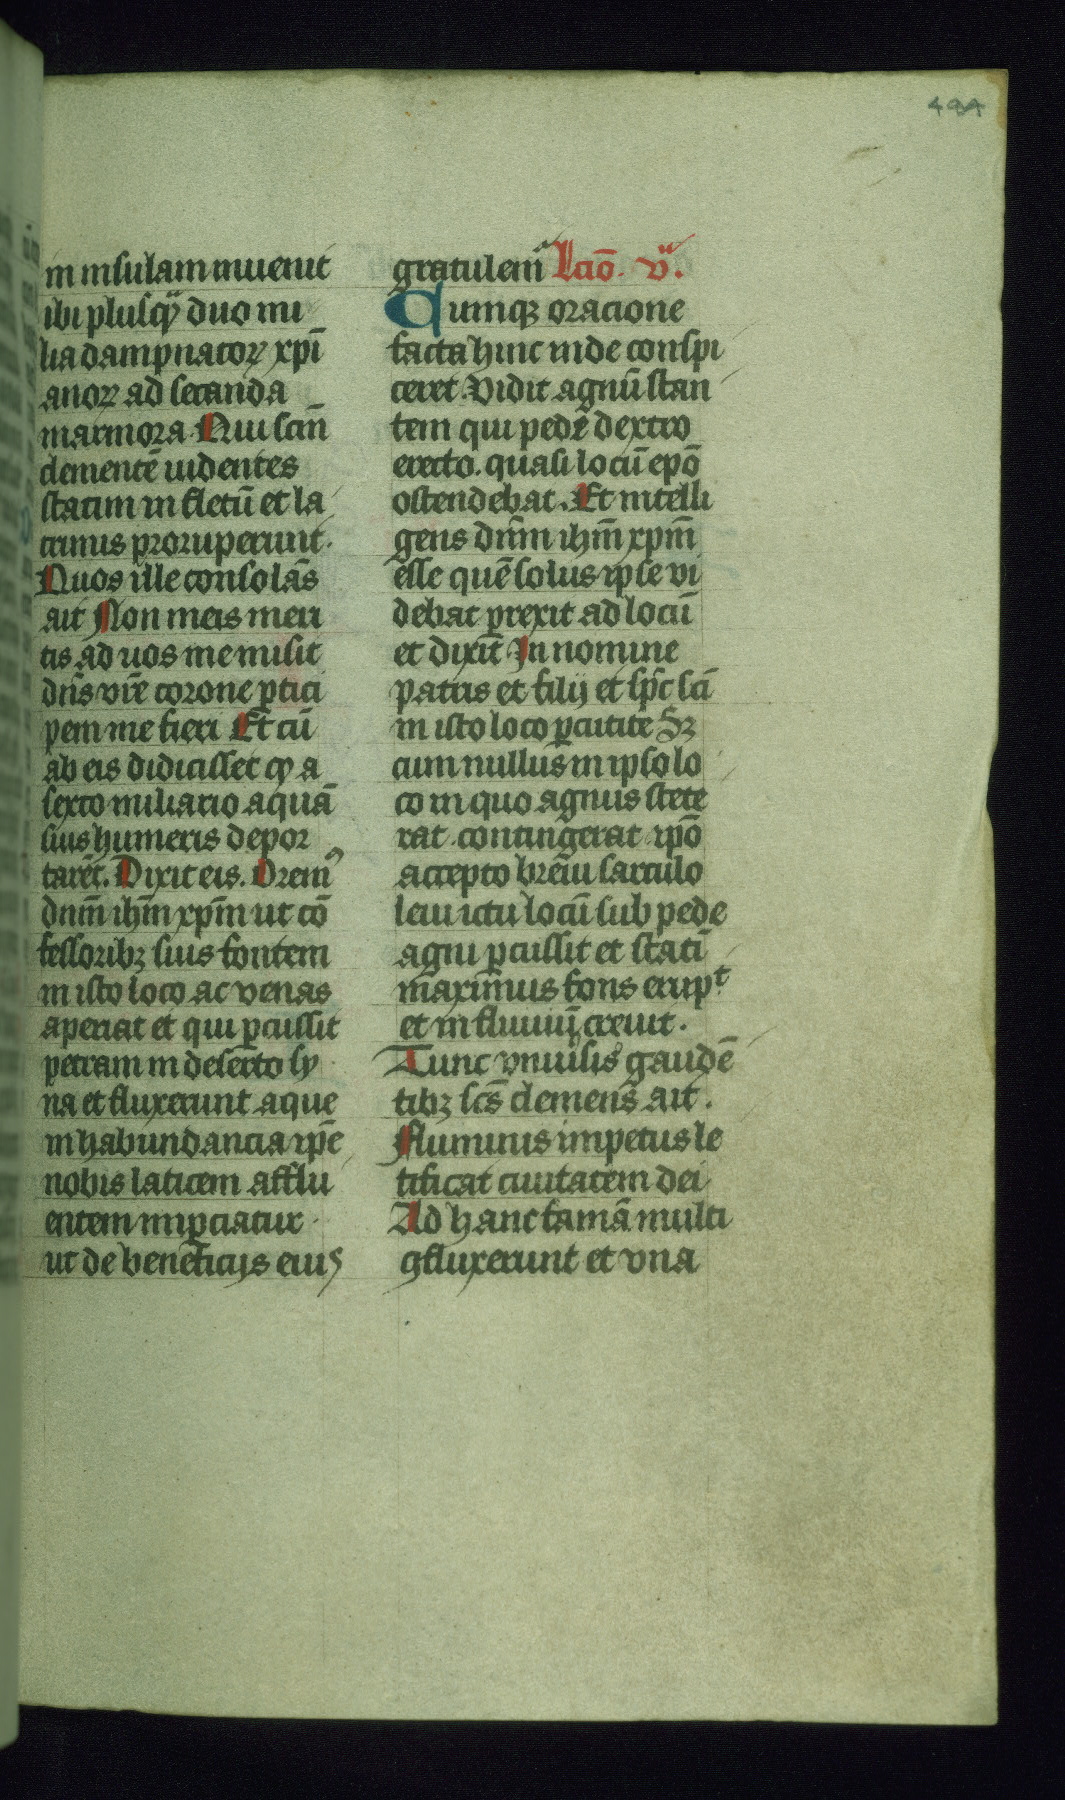 in insulam inuenit
ibi plusqȝ duo mi
lia dampnatoꝝ xp̄i
anoꝝ ad secanda
marmora Qui sc̄m̄
clementē uidentes
statim in fletū et la
crimis proruperunt.
Quos ille consolās
ait Non meis meri
tis ad uos me misit
dn̄s vr̄e corone ꝑtici
pem me fieri Et cū
ab eis didicisset qp a
sexto miliario aquā
suis humeris depor
tarēt. Dixit eis. Oremꝰ
dnm̄ ihm̄ xpm̄ ut cō
fessoribȝ suis fontem
in isto loco ac venas
aperiat et qui ꝑcussit
petram in deserto sy
na et fluxerunt aque
in habundancia ip̄e
nobis laticem afflu
entem impciatur
ut de beneficijs eiuꝰ
gratulemᷓ Lcio̅. v̈.
Cumqȝ oracione
facta hinc inde conspi
ceret. Vidit agnū stan
tem qui pedē dextro
erecto. quasi locū ep̄o
ostendebat. Et intelli
gens dnm̄ ihm̄ xpm̄
esse quē solus ipse vi
debat ꝑrexit ad locū
et dixit In nomine
patris et filij et sp̄c sc̄i
in isto loco ꝑcutite Sȝ
cum nullus in ipso lo
co in quo agnus stete
rat. contingerat ip̄o
accepto breui sarculo
leui ictu locū sub pede
agni ꝑcussit et statī
maximus fons erupᵗ
et in fluuiū creuit.
Tunc vniuͥsis gaudē
tibȝ sc̄s clemens ait.
Fluminis impetus le
tificat ciuitatem dei
Ad hanc famā multi
ꝯfluxerunt et vna